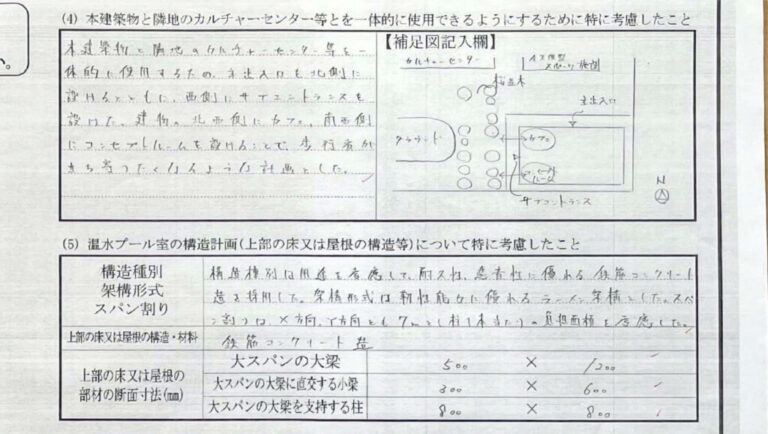 (4) 本建築物と隣地のカルチャー・センター等とを一体的に使用できるようにするために特に考慮したこと
い。
本建築物と隣地のカルチャーセンター等を一
体的に使用するため、主出入口を北側に
設けるとともに、西側にサブエントランスを
設けた。建物の北西側にカフェ、南西側
にコンセプトルームを設けることで、歩行者が
立ち寄りたくなるような計画とした。
【補足図記入欄】
カルチャーセンター
スポーツ施設
桜並木
主出入口
グラウンド
カフェ
コンセプトルーム
サブエントランス
N
(5) 温水プール室の構造計画(上部の床又は屋根の構造等)について特に考慮したこと
構造種別
架構形式
スパン割り
構造種別は用途を考慮して、耐久性、遮音性に優れる鉄筋コンクリート
造を採用した。架構形式は靭性能力に優れるラーメン架構とした。スパ
ン割りは、X方向、Y方向とも7mとし柱1本当たりの負担面積を考慮した。
上部の床又は屋根の構造・材料
鉄筋コンクリート造
上部の床又は屋根の
部材の断面寸法(mm)
大スパンの大梁
500 × 1200
大スパンの大梁に直交する小梁
300 × 600
大スパンの大梁を支持する柱
800 × 800